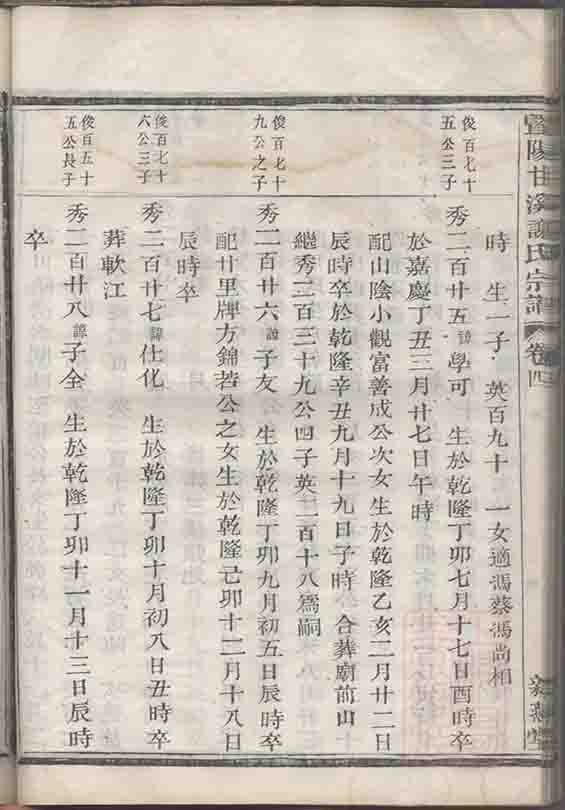 暨陽甘溪謝氏宗譜 卷四
時 生一子 英百九十 一女適馮蔡馮尚相
俊百七十五公三子
秀二百廿五諱學可 生於乾隆丁卯七月十七日酉時卒
於嘉慶丁丑三月廿七日午時
配山陰小觀富善成公次女生於乾隆乙亥二月廿二日
辰時卒於乾隆辛丑九月十九日子時 合葬廟前山
繼秀二百三十九公四子英二百十八為嗣
俊百七十九公之子
秀二百廿六諱子友 生於乾隆丁卯九月初五日辰時卒
配廿里牌方錦若公之女生於乾隆己卯十二月十八日
辰時卒
俊百七十六公三子
秀二百廿七諱仕化 生於乾隆丁卯十月初八日丑時卒
葬軟江
俊百五十五公長子
秀二百廿八諱子全 生於乾隆丁卯十一月十三日辰時
卒